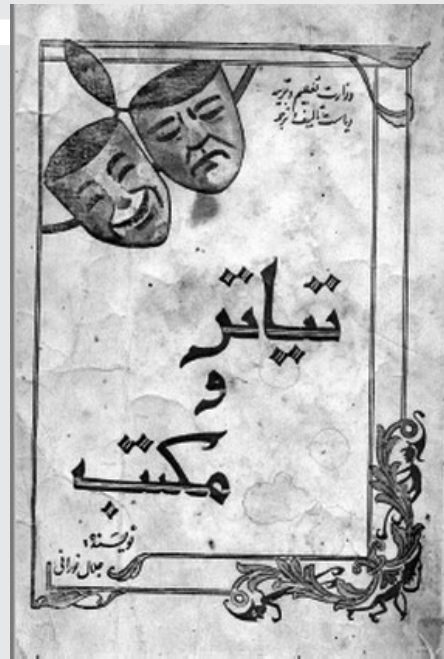 وزارت تعلیم و تربیه
ریاست تالیف و ترجمه
تیاتر
و
مکتب
نویسنده:
جلال نورانی